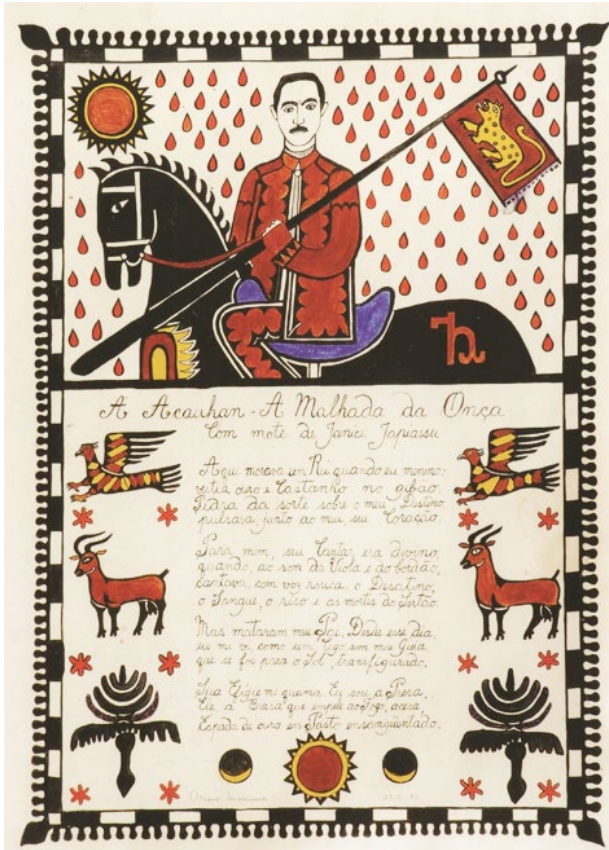 A Acauhan - A Malhada da Onça
Com mote de Janice Japiassu
Aqui morava um Rei quando eu menino:
vestia ouro e Castanho no gibão.
Pedra da sorte sobre o meu Destino,
pulsava, junto ao meu, seu Coração.
Para mim, seu Cantar era divino,
quando, ao som da Viola e do bordão,
cantava, com voz rouca, o Desatino,
o Sangue, o riso e as mortes do Sertão.
Mas mataram meu Pai. Desde esse dia,
eu me vi, como um Cego, sem meu Guia
que se foi para o Sol, transfigurado.
Sua Efígie me queima. Eu sou a Presa,
Ele, a Brasa que impele ao Fogo, acesa,
Espada de ouro em Pasto ensangüentado.